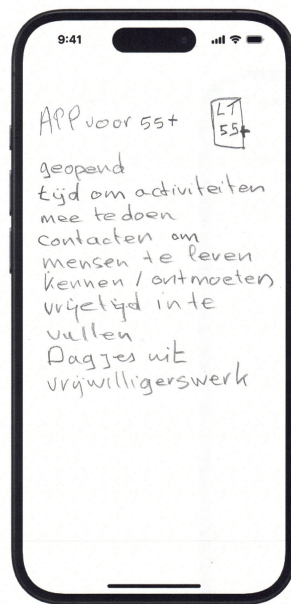 9:41
APP voor 55+
LT
55+
geopend
tijd om activiteiten
mee te doen
contacten om
mensen te leven
kennen / ontmoeten
vrijetijd in te
vullen
Dagjes uit
vrijwilligerswerk